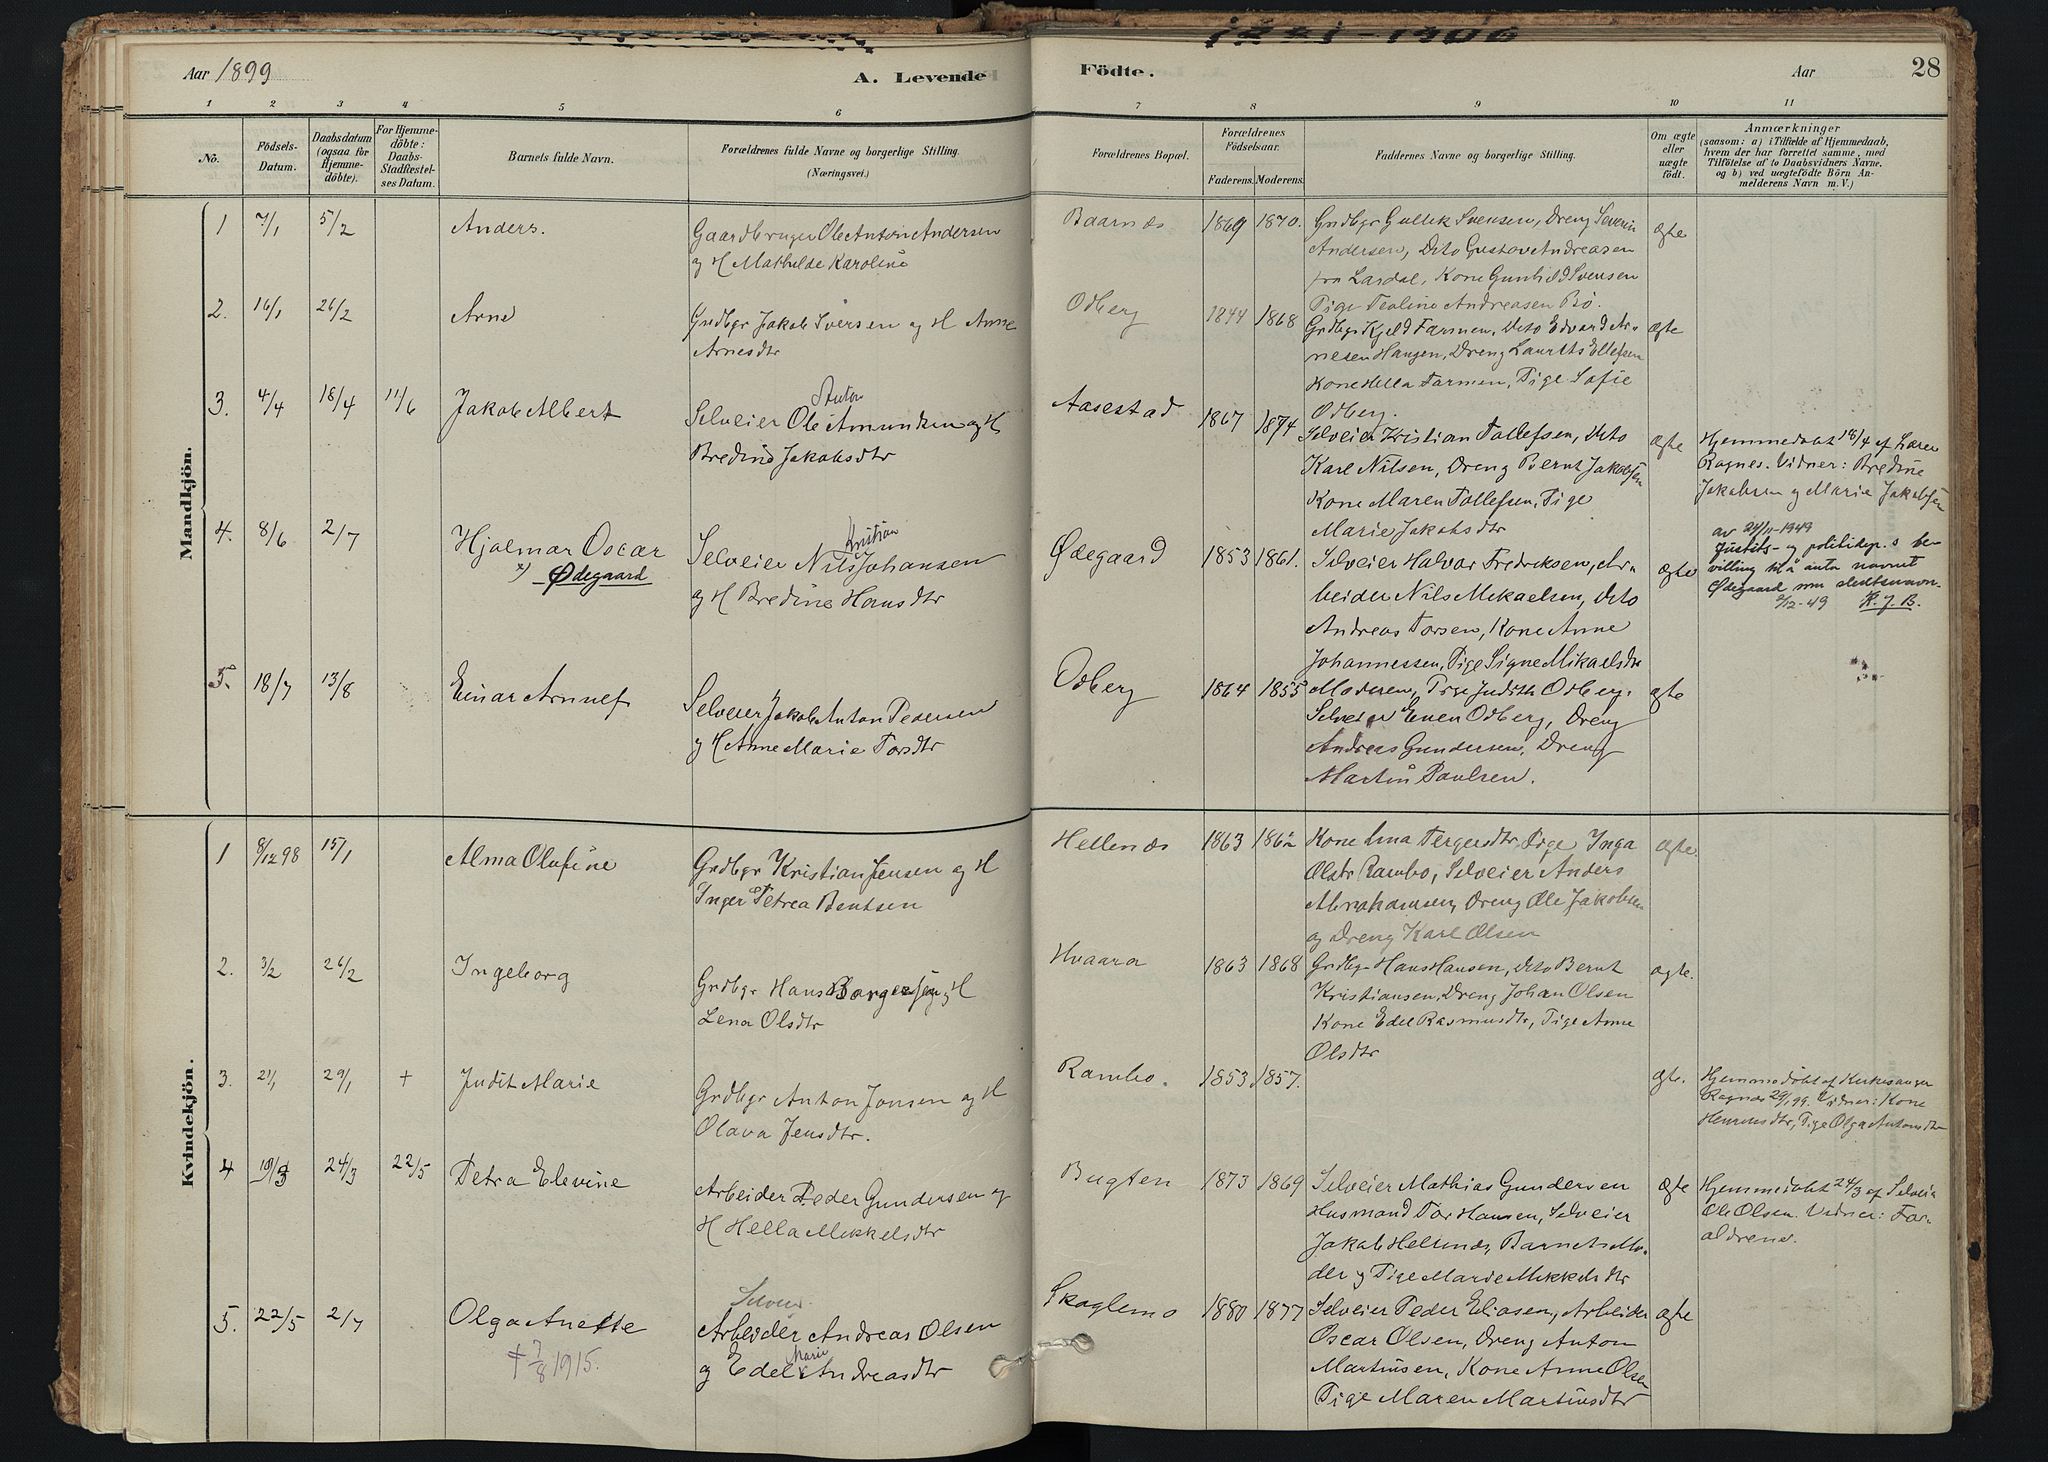 Aar 1899
A. Levende
Födte.
Aar
28
1 2 3 4 5 6 7 8 9 10 11
No.
Födsels-
Datum.
Daabsdatum
(ogsaa for
Hjemme-
döbte).
For Hjemme-
döbte:
Daabs-
Stadfæstel-
ses Datum.
Barnets fulde Navn.
Forældrenes fulde Navne og borgerlige Stilling.
(Næringsvei.)
Forældrenes Bopæl.
Forældrenes
Födselsaar.
Faderens. Moderens.
Faddernes Navne og borgerlige Stilling.
Om ægte
eller
uægte
födt.
Anmærkninger
(saasom: a) i Tilfælde af Hjemmedaab,
hvem der har forrettet samme, med
Tilföielse af to Daabsvidners Navne,
og b) ved uægtefödte Börn An-
melderens Navn m. V.)
Mandkjön.
1 7/1 5/2 Anders.
Gaardbruger Ole Anton Andersen
og H Mathilde Karoline
Baarnes 1869 1870.
Grdbgr Gullik Svensen, Dreng Severin
Andersen, Dito Gustav Andreasen
fra Lardal, Kone Gunhild Svensen
Pige Teoline Andreasen Bö.
ægte
2. 16/1 26/2 Arne
Grdbgr Jakob Iversen og H Anne
Arnesdtr
Odberg 1844 1868
Grdbgr Kjeld Farmen, Dito Edvard Ar-
nesen Haugen, Dreng Laurits Ellefsen
Kone Hella Farmen, Pige Sofie
Odberg.
ægte
3. 4/4 18/4 11/6 Jakob Albert
Anton
Selveier Ole Amundsen og H
Bredine Jakobsdtr
Aasestad 1867 1874
Selveier Kristian Tollefsen, Dito
Karl Nilsen, Dreng Bernt Jakobsen
Kone Maren Tollefsen, Pige
Marie Jakobsdtr
ægte
Hjemmedöbt 18/4 af Lærer
Ragnes. Vidner: Bredine
Jakobsen og Marie Jakobsen
4. 8/6 2/7 Hjalmar Oscar
x) Ødegaard
Kristian
Selveier Nils Johansen
og H Bredine Hansdtr
Ødegaard 1853 1861.
Selveier Halvor Fredriksen, Ar-
beider Nils Mikaelsen, Dito
Andreas Torsen, Kone Anne
Johannessen, Pige Signe Mikaelsdtr
ægte
av 24/11-1949
Justits- og politidep.s be-
villing til å anta navnet
Ødegaard som slektsnavn.
2/12-49 H. J. B.
5. 18/7 13/8 Einar Arnulf
Selveier Jakob Anton Pedersen
og H Anne Marie Torsdtr
Odberg 1864 1855
Moderen, Pige Judith Odberg.
Selveier Even Odberg, Dreng
Andreas Gundersen, Dreng
Martin Paulsen.
ægte
Kvindekjön.
1 8/12 98 15/1 Alma Olufine
Grdbgr Kristian Jensen og H
Inger Petrea Bentsen
Hellenes 1863 1862
Kone Ina Tergersdtr, Pige Inga
Olsdtr Rambo, Selveier Anders
Abrahamsen, Dreng Ole Jakobsen
og Dreng Karl Olsen
ægte.
2. 3/2 26/2 Ingeborg
Grdbgr Hans Borgersen og H
Lena Olsdtr
Hvaara 1863 1868
Grdbgr Hans Hansen, Dito Bernt
Kristiansen, Dreng Johan Olsen
Kone Edel Rasmusdtr, Pige Anne
Olsdtr
ægte.
3. 21/1 29/1 + Judit Marie
Grdbgr Anton Jonsen og H
Olava Jensdtr.
Rambo. 1853 1857.
ægte.
Hjemmedöbt af Kirkesanger
Ragnes 29/1 99. Vidner: Kone
Henriksdtr, Pige Olga Antonsdtr
4 19/3 24/3 22/5 Petra Elevine
Arbeider Peder Gundersen og
H Hella Mikkelsdtr
Bugten 1873 1869
Selveier Mathias Gundersen
Husmand Tor Hansen, Selveier
Jakob Hellenes, Barnets Mo-
der og Pige Marie Mikkelsdtr
ægte
Hjemmedöbt 24/3 af Selveier
Ole Olsen. Vidner: For-
ældrene.
5. 22/5 2/7 Olga Anette
† 7/8 1915.
Selveier
Arbeider Andreas Olsen
og Edel Marie Andreasdtr
Skoglemo 1880 1877
Selveier Peder Eliasen, Arbeider
Oscar Olsen, Dreng Anton
Martinsen, Kone Anne Olsen
Pige Maren Martinsdtr
ægte